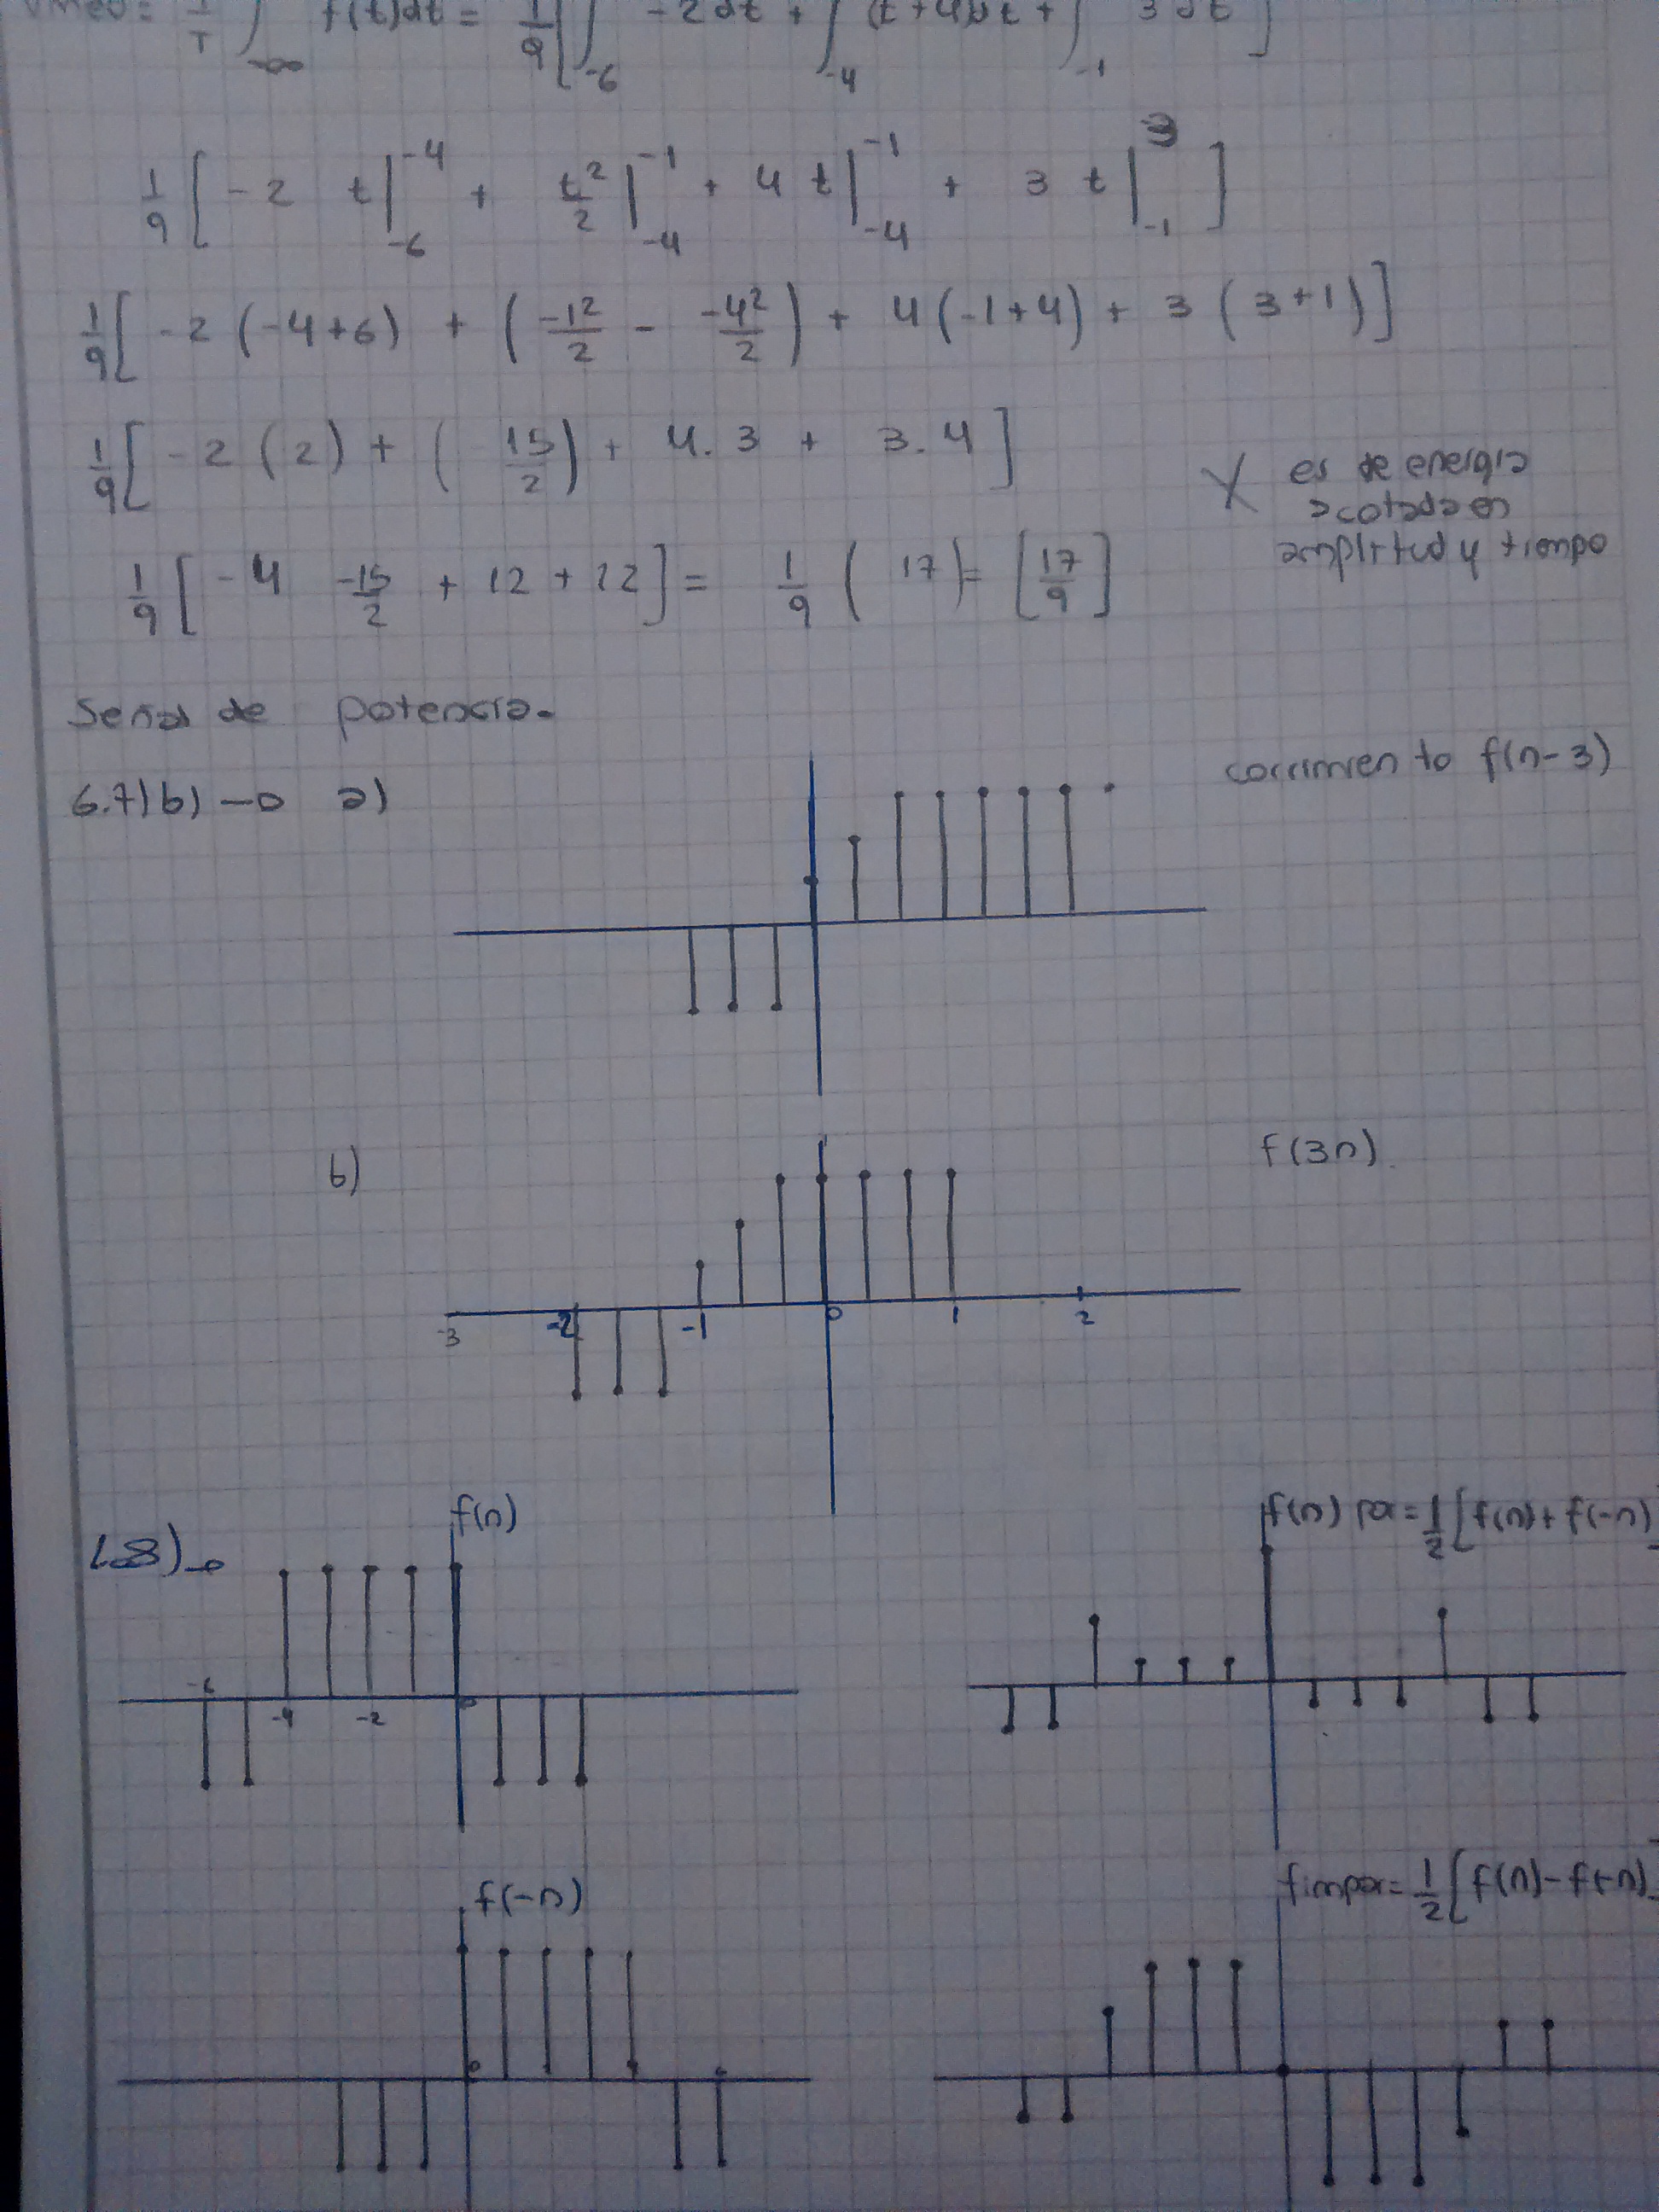 VMed = 1/T ∫_-∞ f(t)dt = 1/9 [ ∫_-6 -2 dt + ∫_-4 (t+4)dt + ∫_-1 3 dt ]
1/9 [ -2 t|_-6^-4 + t²/2|_-4^-1 + 4 t|_-4^-1 + 3 t|_-1^3 ]
1/9 [ -2 (-4+6) + ( -1²/2 - -4²/2 ) + 4 (-1+4) + 3 (3+1) ]
1/9 [ -2 (2) + ( - 15/2 ) + 4.3 + 3.4 ]
X es de energia
acotada en
amplitud y tiempo
1/9 [ -4 -15/2 + 12 + 12 ] = 1/9 ( 17 ) = [ 17/9 ]
Señal de potencia.
6.7)b) → a)
corrimiento f(n-3)
b)
f(3n).
-3 -2 -1 0 1 2
1.8) →
f(n)
-6 -4 -2 0
f(n) par = 1/2 [ f(n) + f(-n) ]
f(-n)
0
fimpar = 1/2 [ f(n) - f(-n) ]